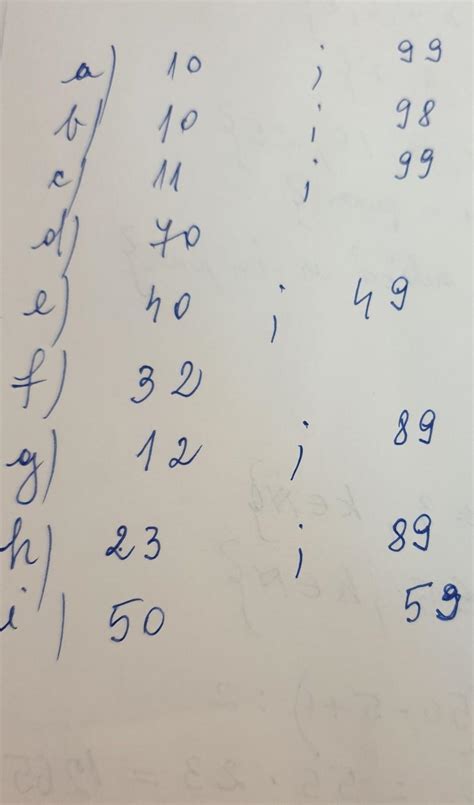 a) 10 ; 99
b) 10 ; 98
c) 11 ; 99
d) 70
e) 40 ; 49
f) 32
g) 12 ; 89
h) 23 ; 89
i) 50 59